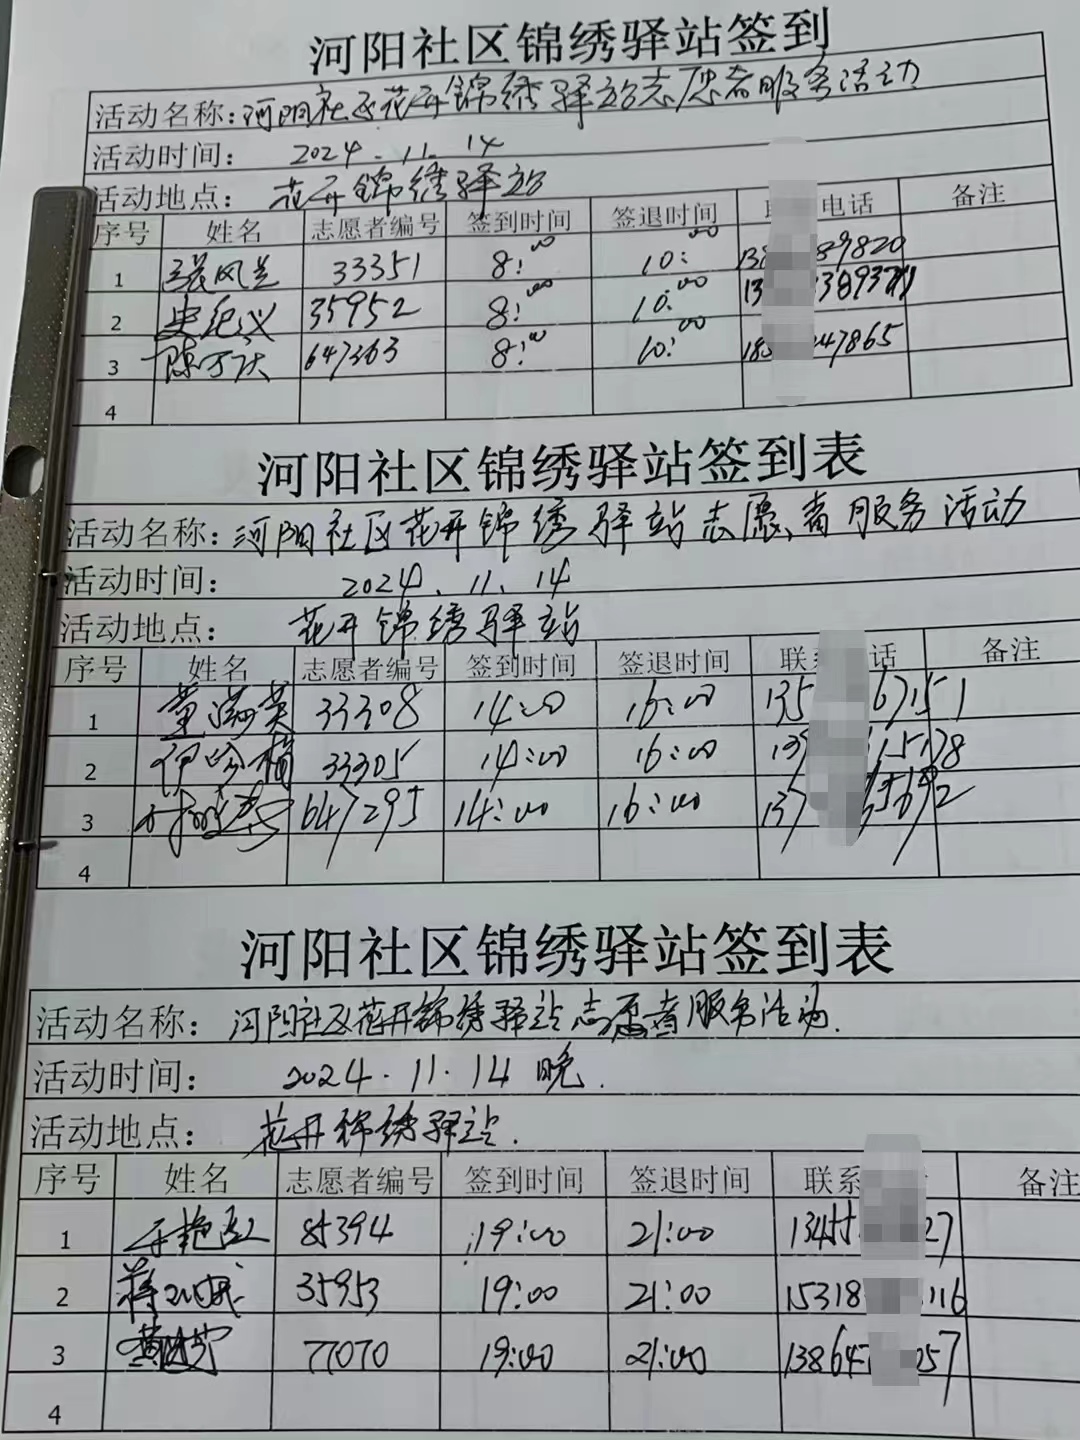 河阳社区锦绣驿站签到
活动名称：河阳社区花开锦绣驿站志愿者服务活动
活动时间： 2024.11.14
活动地点： 花开锦绣驿站
序号 姓名 志愿者编号 签到时间 签退时间 电话 备注
1 张凤兰 33351 8:00 10:00 13 89820
2 35952 8:00 10:00 13 3893
3 陈万庆 647363 8:00 10:00 18 47865
4
河阳社区锦绣驿站签到表
活动名称：河阳社区花开锦绣驿站志愿者服务活动
活动时间： 2024.11.14
活动地点： 花开锦绣驿站
序号 姓名 志愿者编号 签到时间 签退时间 联系 话 备注
1 董海英 33308 14:00 16:00 135 67151
2 33305 14:00 16:00 13 15178
3 647295 14:00 16:00 137 5692
4
河阳社区锦绣驿站签到表
活动名称：河阳社区花开锦绣驿站志愿者服务活动.
活动时间： 2024.11.14 晚.
活动地点： 花开锦绣驿站.
序号 姓名 志愿者编号 签到时间 签退时间 联系 备注
1 85394 19:00 21:00 13455 27
2 35953 19:00 21:00 15318 116
3 77070 19:00 21:00 13864 057
4